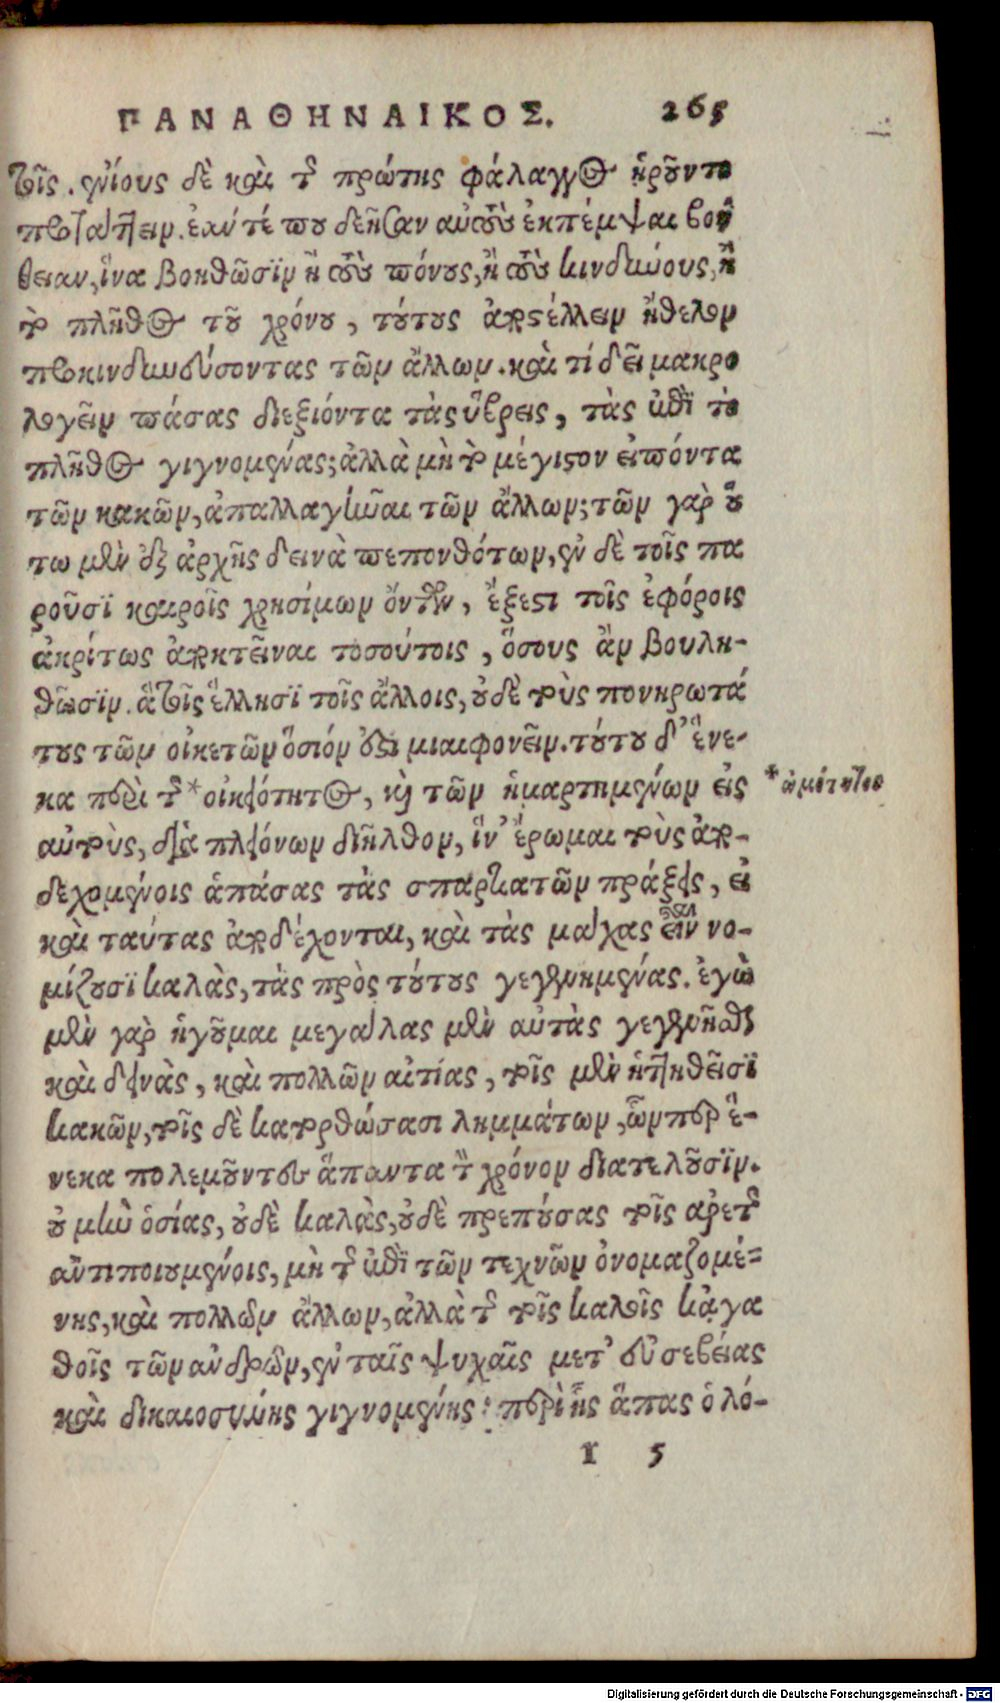 ΠΑΝΑΘΗΝΑΙΚΟΣ. 265
τοῖς. ἐνίους δὲ καὶ τῆς πρώτης φάλαγγος ᾑροῦντο
προτάττειν. ἐάν τέ που δεῆσαν αὐτοὺς ἐκπέμψαι βοή
θειαν, ἵνα βοηθῶσϊν ἢ τοὺς πόνους, ἢ τοὺς κινδύνους, ἢ
τὸ πλῆθος τοῦ χρόνου, τούτους ἀποστέλλειν ἤθελον
προκινδυνεύσοντας τῶν ἄλλων. καὶ τί δεῖ μακρο
λογεῖν πάσας διεξιόντα τὰς ὕβρεις, τὰς ἐπὶ τὸ
πλῆθος γιγνομένας; ἀλλὰ μὴ τὸ μέγιστον εἰπόντα
τῶν κακῶν, ἀπαλλαγῆναι τῶν ἄλλων; τῶν γὰρ οὕ
τω μὲν ἐξ ἀρχῆς δεινὰ πεπονθότων, ἐν δὲ τοῖς πα
ροῦσϊ καιροῖς χρησίμων ὄντων, ἔξεστι τοῖς ἐφόροις
ἀκρίτως ἀποκτεῖναι τοσούτοις, ὅσους ἂν βουλη-
θῶσϊν. ἃ τοῖς ἕλλησϊ τοῖς ἄλλοις, οὐδὲ τοὺς πονηρωτά
τους τῶν οἰκετῶν ὅσιόν ἐστι μιαιφονεῖν. τούτου δ' ἕνε-
κα περὶ τῆς *οἰκειότητος, καὶ τῶν ἡμαρτημένων εἰς
*ὠμότητος
αὐτοὺς, διὰ πλειόνων διῆλθον, ἵν' ἔρωμαι τοὺς ἀπο-
δεχομένοις ἁπάσας τὰς σπαρτιατῶν πράξεις, εἰ
καὶ ταύτας ἀποδέχονται, καὶ τὰς μάχας εἶναι νο-
μίζουσϊ καλὰς, τὰς πρὸς τούτους γεγενημένας. ἐγὼ
μὲν γὰρ ἡγοῦμαι μεγάλας μὲν αὐτὰς γεγενῆσθαι
καὶ δεινὰς, καὶ πολλῶν αἰτίας, τοῖς μὲν ἡττηθεῖσϊ
κακῶν, τοῖς δὲ κατορθώσασι λημμάτων, ὧνπερ ἕ-
νεκα πολεμοῦντες ἅπαντα τὸν χρόνον διατελοῦσϊν.
οὐ μὴν ὁσίας, οὐδὲ καλὰς, οὐδὲ πρεπούσας τοῖς ἀρετῆς
ἀντιποιουμένοις, μὴ τῆς ἐπὶ τῶν τεχνῶν ὀνομαζομέ-
νης, καὶ πολλῶν ἄλλων, ἀλλὰ τῆς τοῖς καλοῖς κἀγα
θοῖς τῶν ἀνδρῶν, ἐν ταῖς ψυχαῖς μετ' εὐσεβείας
καὶ δικαιοσύνης γιγνομένης: περὶ ἧς ἅπας ὁ λό-
I 5
Digitalisierung gefördert durch die Deutsche Forschungsgemeinschaft - DFG